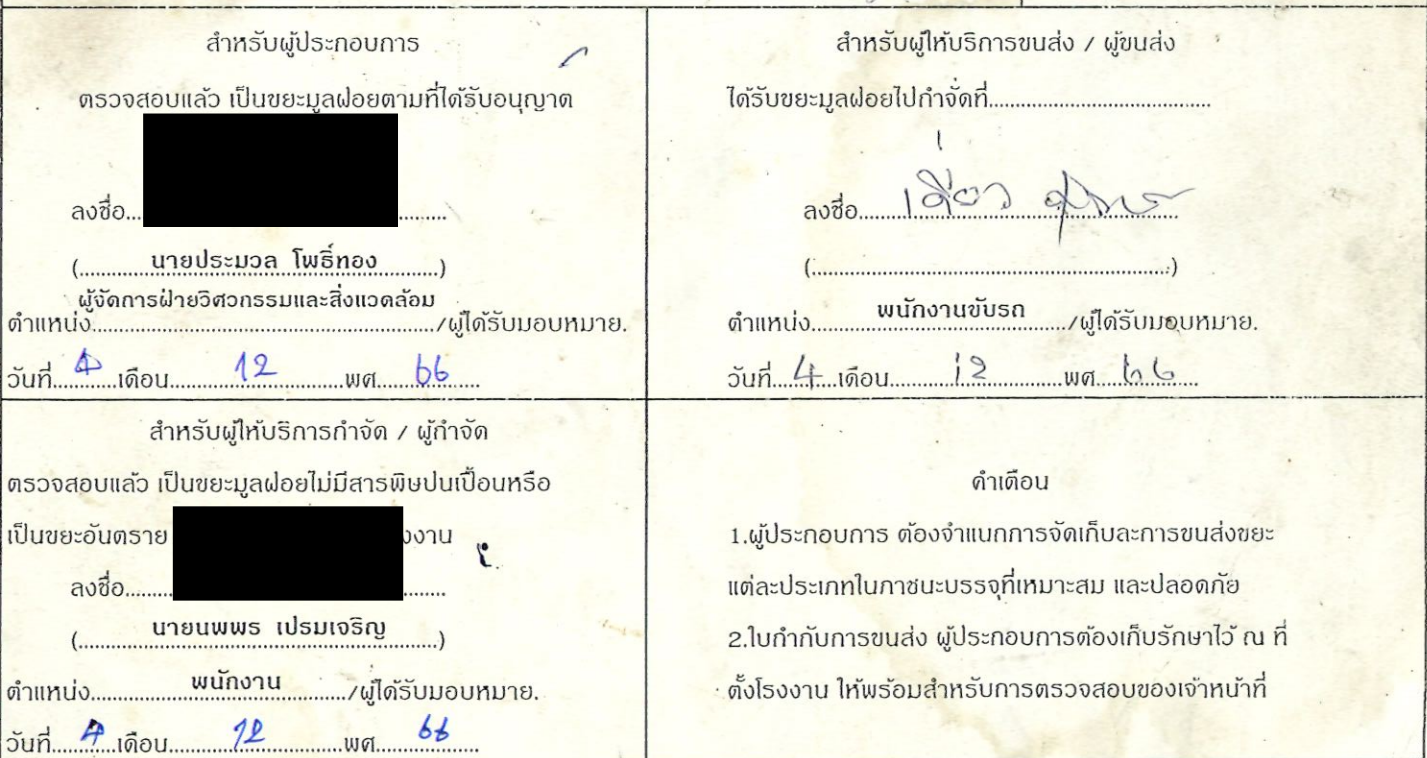 สำหรับผู้ประกอบการ
ตรวจสอบแล้ว เป็นขยะมูลฝอยตามที่ได้รับอนุญาต
ลงชื่อ...
(นายประมวล โพธิ์ทอง)
ผู้จัดการฝ่ายวิศวกรรมและสิ่งแวดล้อม
ตำแหน่ง.........../ผู้ได้รับมอบหมาย.
วันที่ 4 เดือน 12 พศ 66
สำหรับผู้ให้บริการขนส่ง / ผู้ขนส่ง
ได้รับขยะมูลฝอยไปกำจัดที่...........
ลงชื่อ
(...........)
ตำแหน่ง พนักงานขับรถ /ผู้ได้รับมอบหมาย.
วันที่ 4 เดือน 12 พศ 66
สำหรับผู้ให้บริการกำจัด / ผู้กำจัด
ตรวจสอบแล้ว เป็นขยะมูลฝอยไม่มีสารพิษปนเปื้อนหรือ
เป็นขยะอันตราย
ลงชื่อ...
(นายนพพร เปรมเจริญ)
ตำแหน่ง พนักงาน /ผู้ได้รับมอบหมาย.
วันที่ 4 เดือน 12 พศ 66
คำเตือน
1.ผู้ประกอบการ ต้องจำแนกการจัดเก็บละการขนส่งขยะ
แต่ละประเภทในภาชนะบรรจุที่เหมาะสม และปลอดภัย
2.ใบกำกับการขนส่ง ผู้ประกอบการต้องเก็บรักษาไว้ ณ ที่
ตั้งโรงงาน ให้พร้อมสำหรับการตรวจสอบของเจ้าหน้าที่